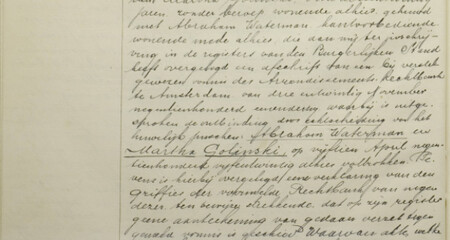 jaren zonder beroep wonende alhier, gehuwd
met Abraham Waterman, kantoorbediende
wonende mede alhier, die aan mij ter inschrij-
ving in de registers van den Burgerlijken Stand
heeft overgelegd een afschrift van een bij verstek
gewezen vonnis der Arrondissements Rechtbank
te Amsterdam van drie en twintig november
negentienhonderd een en dertig waarbij is uitge-
sproken de ontbinding door echtscheiding van het
huwelijk tusschen: Abraham Waterman en
Martha Golinski, op vijftien April negen-
tienhonderd vijfentwintig alhier voltrokken. Te-
vens is hierbij overgelegd eene verklaring van den
griffier der voormelde Rechtbank van negen
dezer, ten bewijze strekkende dat op zijn register
geene aanteekening van gedaan verzet tegen
gemeld vonnis is geschied. Waarvan akte, welke